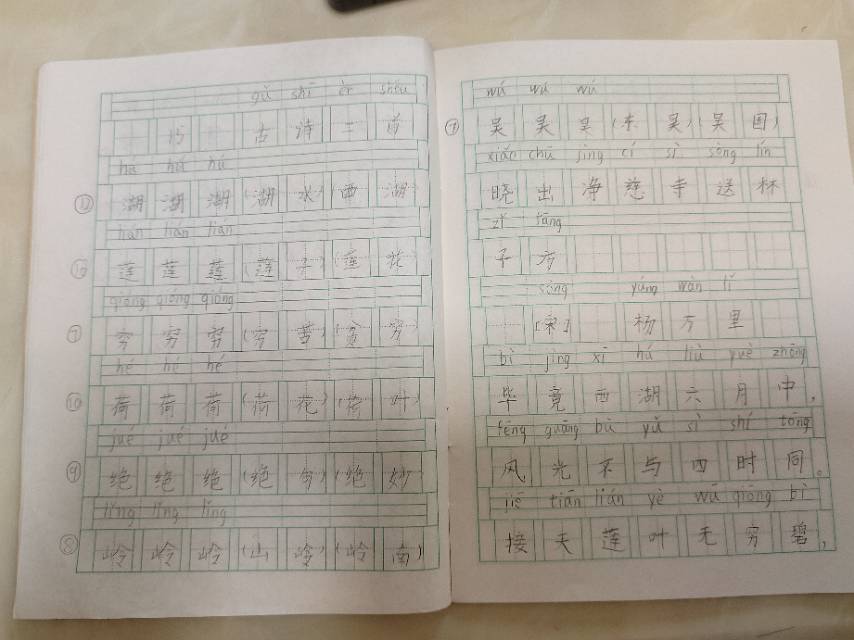 gǔ shī èr shǒu
15 古诗二首
hú hú hú
⑫ 湖 湖 湖 (湖 水)(西 湖
lián lián lián
⑩ 莲 莲 莲 (莲 子)(莲 花
qióng qióng qióng
⑦ 穷 穷 穷 (穷 苦)(贫 穷
hé hé hé
⑩ 荷 荷 荷 (荷 花)(荷 叶)
jué jué jué
⑨ 绝 绝 绝 (绝 句)(绝 妙)
lǐng lǐng lǐng
⑧ 岭 岭 岭 (山 岭)(岭 南)
wú wú wú
⑦ 吴 吴 吴 (东 吴)(吴 国)
xiǎo chū jìng cí sì sòng lín
晓 出 净 慈 寺 送 林
zǐ fāng
子 方
sòng yáng wàn lǐ
[宋] 杨 万 里
bì jìng xī hú liù yuè zhōng
毕 竟 西 湖 六 月 中，
fēng guāng bù yǔ sì shí tóng
风 光 不 与 四 时 同。
jiē tiān lián yè wú qióng bì
接 天 莲 叶 无 穷 碧，